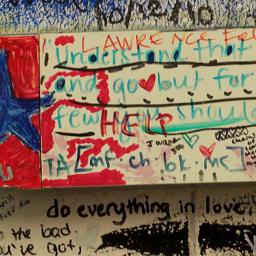 10/12/10
LAWRENCE
Understand that
and go but for
few HELP should
I want
TA [mf. ch. bk. mc]
do everything in love.
the bad.
you've got,